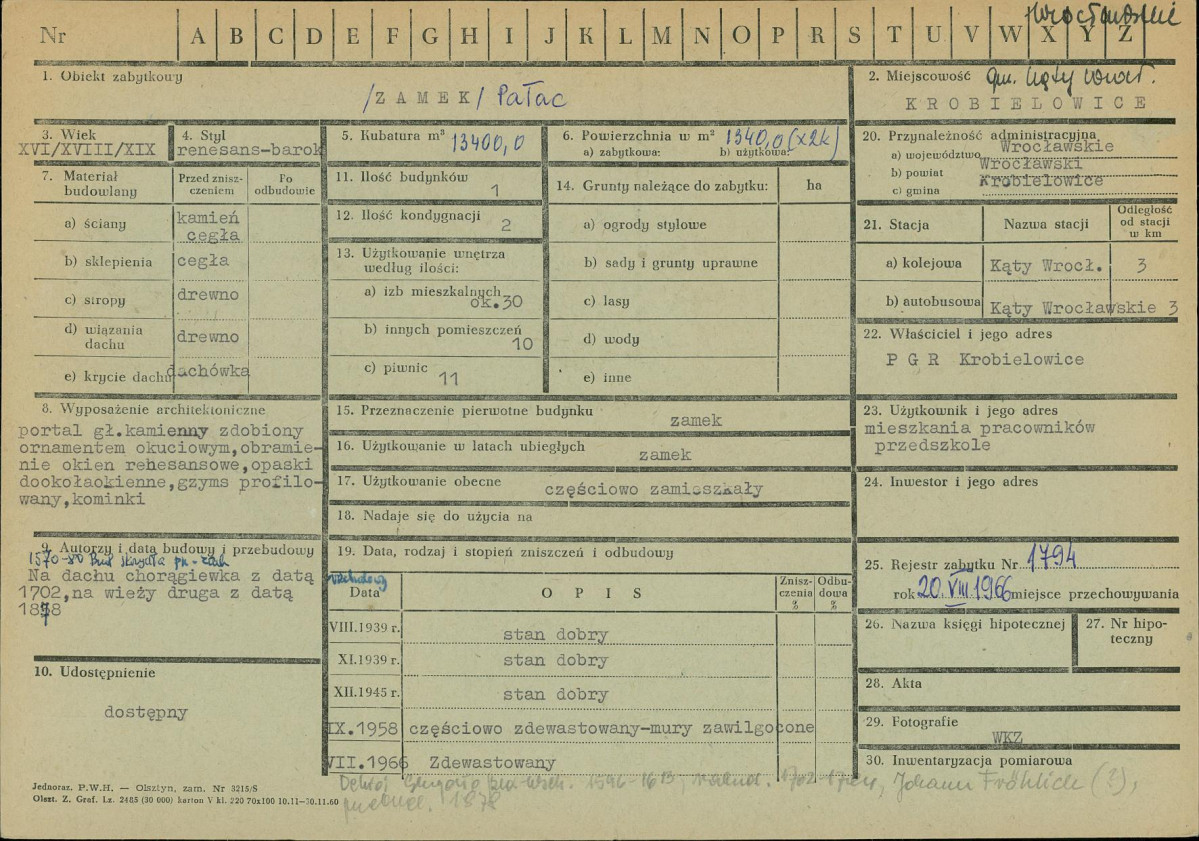 Nr A B C D E F G H I J K L M N O P R S T U V W X Y Z
Wrocławskie
1. Obiekt zabytkowy
/ZAMEK/ Pałac
2. Miejscowość gm. Kąty Wrocł.
KROBIELOWICE
3. Wiek
XVI/XVIII/XIX
4. Styl
renesans-barok
5. Kubatura m³ 13400,0
6. Powierzchnia w m² 1340,0 (x2k)
a) zabytkowa: b) użytkowa:
20. Przynależność administracyjna
a) województwo Wrocławskie
b) powiat Wrocławski
c) gmina Krobielowice
7. Materiał budowlany
Przed zniszczeniem
Po odbudowie
a) ściany kamień
cegła
b) sklepienia cegła
c) stropy drewno
d) wiązania dachu drewno
e) krycie dachu dachówka
11. Ilość budynków 1
12. Ilość kondygnacji 2
13. Użytkowanie wnętrza
według ilości:
a) izb mieszkalnych ok.30
b) innych pomieszczeń 10
c) piwnic 11
14. Grunty należące do zabytku: ha
a) ogrody stylowe
b) sady i grunty uprawne
c) lasy
d) wody
e) inne
21. Stacja Nazwa stacji Odległość od stacji w km
a) kolejowa Kąty Wrocł. 3
b) autobusowa Kąty Wrocławskie 3
22. Właściciel i jego adres
P G R Krobielowice
8. Wyposażenie architektoniczne
portal gł.kamienny zdobiony
ornamentem okuciowym,obramie-
nie okien renesansowe,opaski
dookołaokienne,gzyms profilo-
wany,kominki
15. Przeznaczenie pierwotne budynku zamek
16. Użytkowanie w latach ubiegłych zamek
17. Użytkowanie obecne częściowo zamieszkały
18. Nadaje się do użycia na
23. Użytkownik i jego adres
mieszkania pracowników
przedszkole
24. Inwestor i jego adres
9. Autorzy i data budowy i przebudowy
1570-80 Bud skrzydła pn-zach
Na dachu chorągiewka z datą
1702,na wieży druga z datą
1878
10. Udostępnienie
dostępny
19. Data, rodzaj i stopień zniszczeń i odbudowy
Data OPIS Zniszczenia % Odbudowa %
VIII.1939 r. stan dobry
XI.1939 r. stan dobry
XII.1945 r. stan dobry
IX.1958 częściowo zdewastowany-mury zawilgocone
VII.1966 Zdewastowany
1596-1613, 1702-1704, Johann Fröhlich (?),
1878
25. Rejestr zabytku Nr 1794
rok 20.VIII.1966 miejsce przechowywania
26. Nazwa księgi hipotecznej
27. Nr hipo-
teczny
28. Akta
29. Fotografie
WKZ
30. Inwentaryzacja pomiarowa
Jednoraz. P.W.H. — Olsztyn, zam. Nr 3215/S
Olszt. Z. Graf. Lz. 2485 (30 000) karton V kl. 220 70x100 10.11-30.11.60